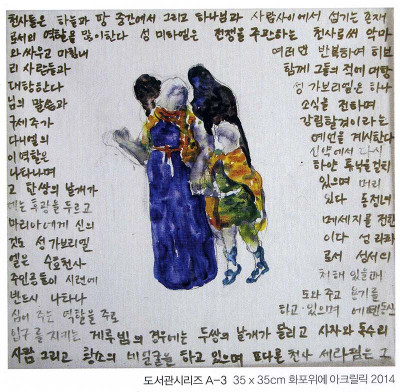 천사들은 하늘과 땅 중간에서 그리고 하나님과 사람사이에서 섬기는 존재
로서의 역할을 많이한다 성 미카엘은 전쟁을 주관하는 천사로써 악마
와싸우고 마침내 여러번 반복하여 히브
리 사람들과 함께 그들의 적에 대항
대항한다 성 가브리엘은 하나
님의 말씀과 소식을 전하며
구세주가 강림할것이라는
다니엘의 예언을 계시한다
이역할은 신약에서 다시
나타나며 하얀
고 한쌍의 날개가 있으며 머리
에는 두르고 있다 동정녀
마리아에게 신의 메세지를 전한
것도 성가브리엘 이다 성 라파
엘은 수호천사 로서 성서의
주인공들이 시련에 처해 있을때
반드시 나타나 도와 주고 용기를
심어 주는 역할을 주로 하고 있으며 에덴동산
입구를 지키는 게루빔의 경우에는 두쌍의 날개가 달리고 사자와 독수리
사람 그리고 황소의 네얼굴을 하고 있으며 또다른 천사 세라핌은 그
도서관시리즈 A-3 35 x 35cm 화포위에 아크릴릭 2014